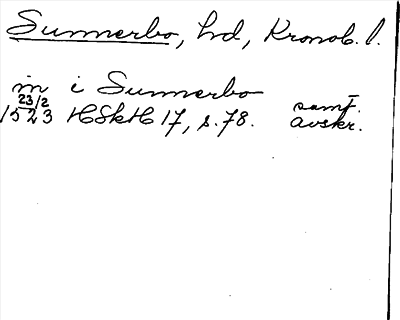 Sunnerbo, hd, Kronob. l.
in i Sunnerbo
23/2 samt.
1523 HSkH 17, s. 78. avskr.